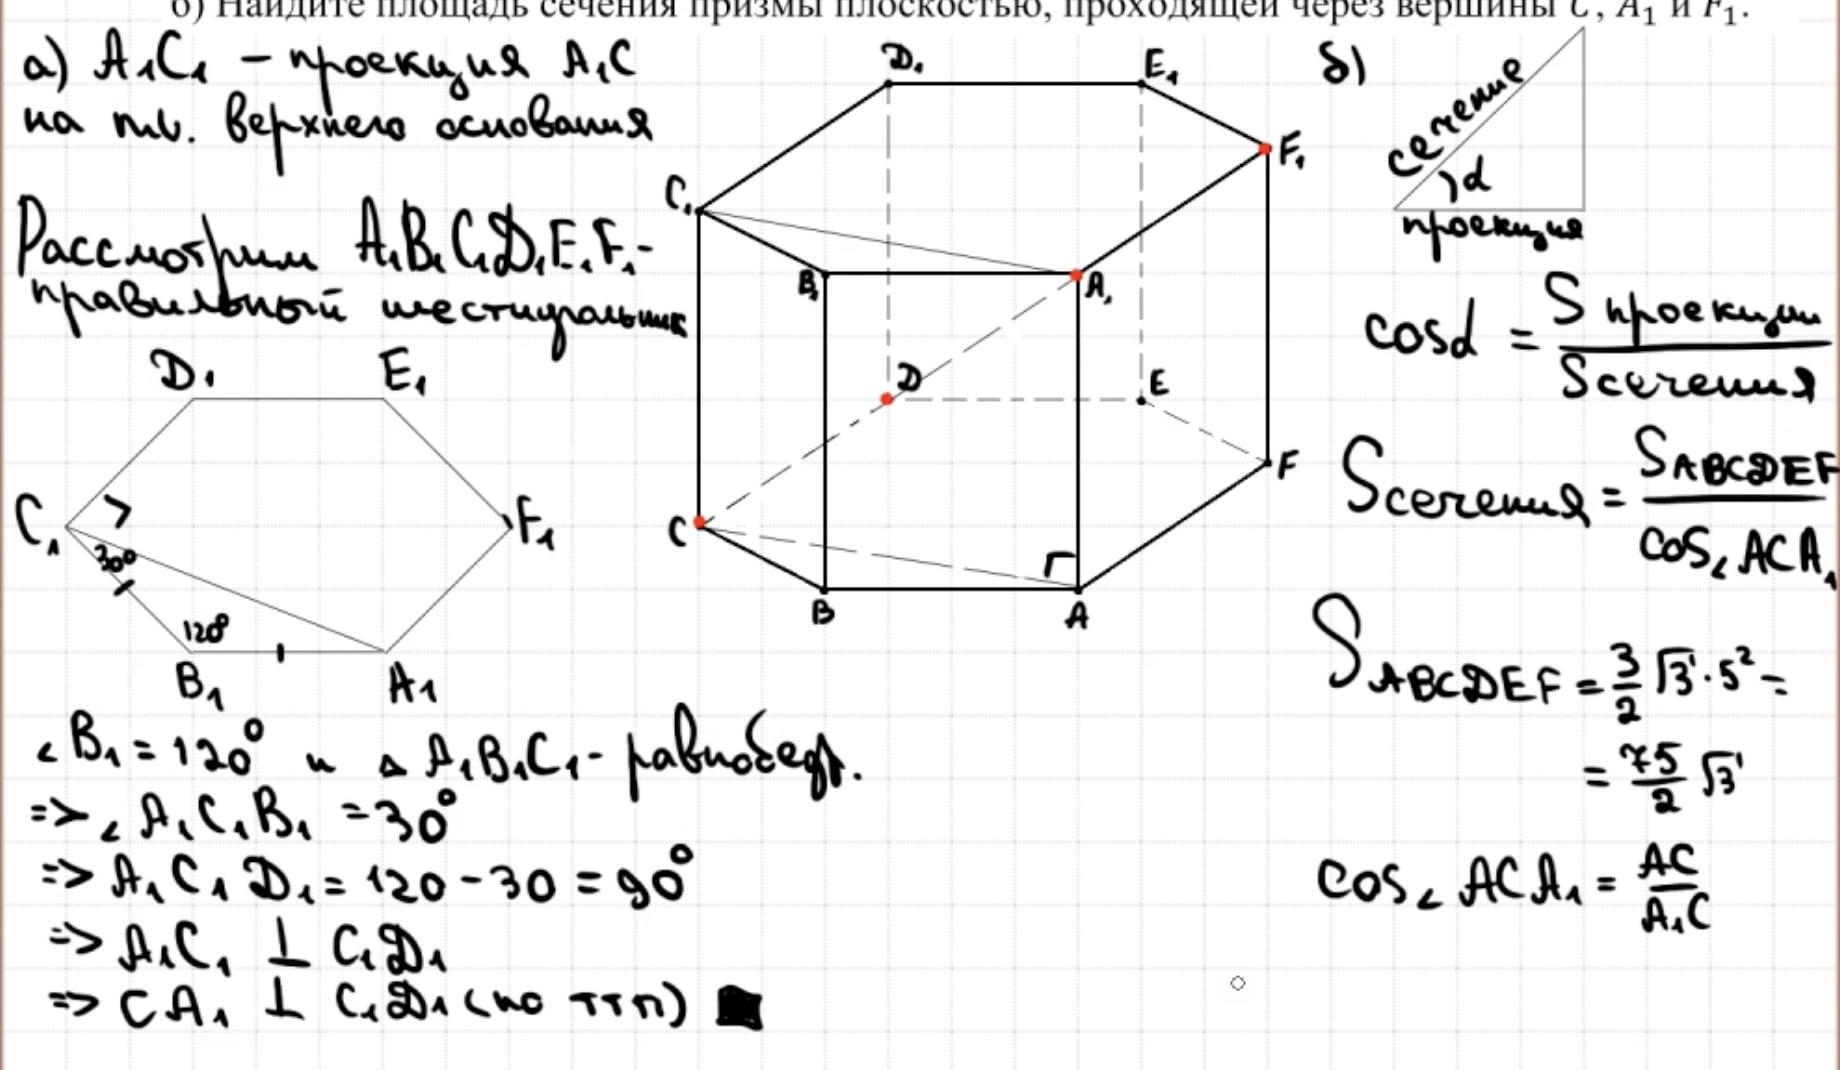 б) Найдите площадь сечения призмы плоскостью, проходящей через вершины C, A₁ и F₁.
а) A₁C₁ – проекция A₁C
на пл. верхнего основания
Рассмотрим A₁B₁C₁D₁E₁F₁ -
правильный шестиугольник
D₁ E₁
C₁ F₁
30°
120°
B₁ A₁
∠B₁ = 120° и △ A₁B₁C₁ - равнобедр.
=> ∠A₁C₁B₁ = 30°
=> A₁C₁D₁ = 120 - 30 = 90°
=> A₁C₁ ⊥ C₁D₁
=> CA₁ ⊥ C₁D₁ (по ттп)
D₁ E₁
F₁
C₁
B₁ A₁
D E
F
C
B A
б)
сечение
α
проекция
cosα = S проекции / S сечения
S сечения = S ABCDEF / cos∠ACA₁
S ABCDEF = 3/2 √3 · 5² =
= 75/2 √3
cos∠ACA₁ = AC/A₁C